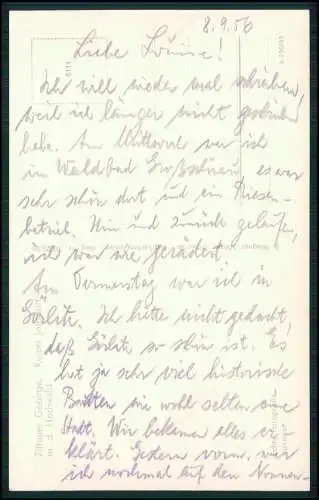 8.9.56
Liebe Louise!
Ich will wieder mal schreiben,
weil ich länger nicht geschrieben
habe. Am Mittwoch war ich
im Waldbad Großschönau, es war
sehr schön dort und ein Riesen-
betrieb. Hin und zurück gelaufen,
ich war wie gerädert.
Am Donnerstag war ich in
Görlitz. Ich hätte nicht gedacht,
daß Görlitz so schön ist. Es
hat ja sehr viel historische
Bauten wie wohl selten eine
Stadt. Wir bekamen alles er-
klärt. Gestern vorm. war
ich nochmal auf den Nonnen-
Zittauer Gebirge, Kurort
m. d. Hochwald